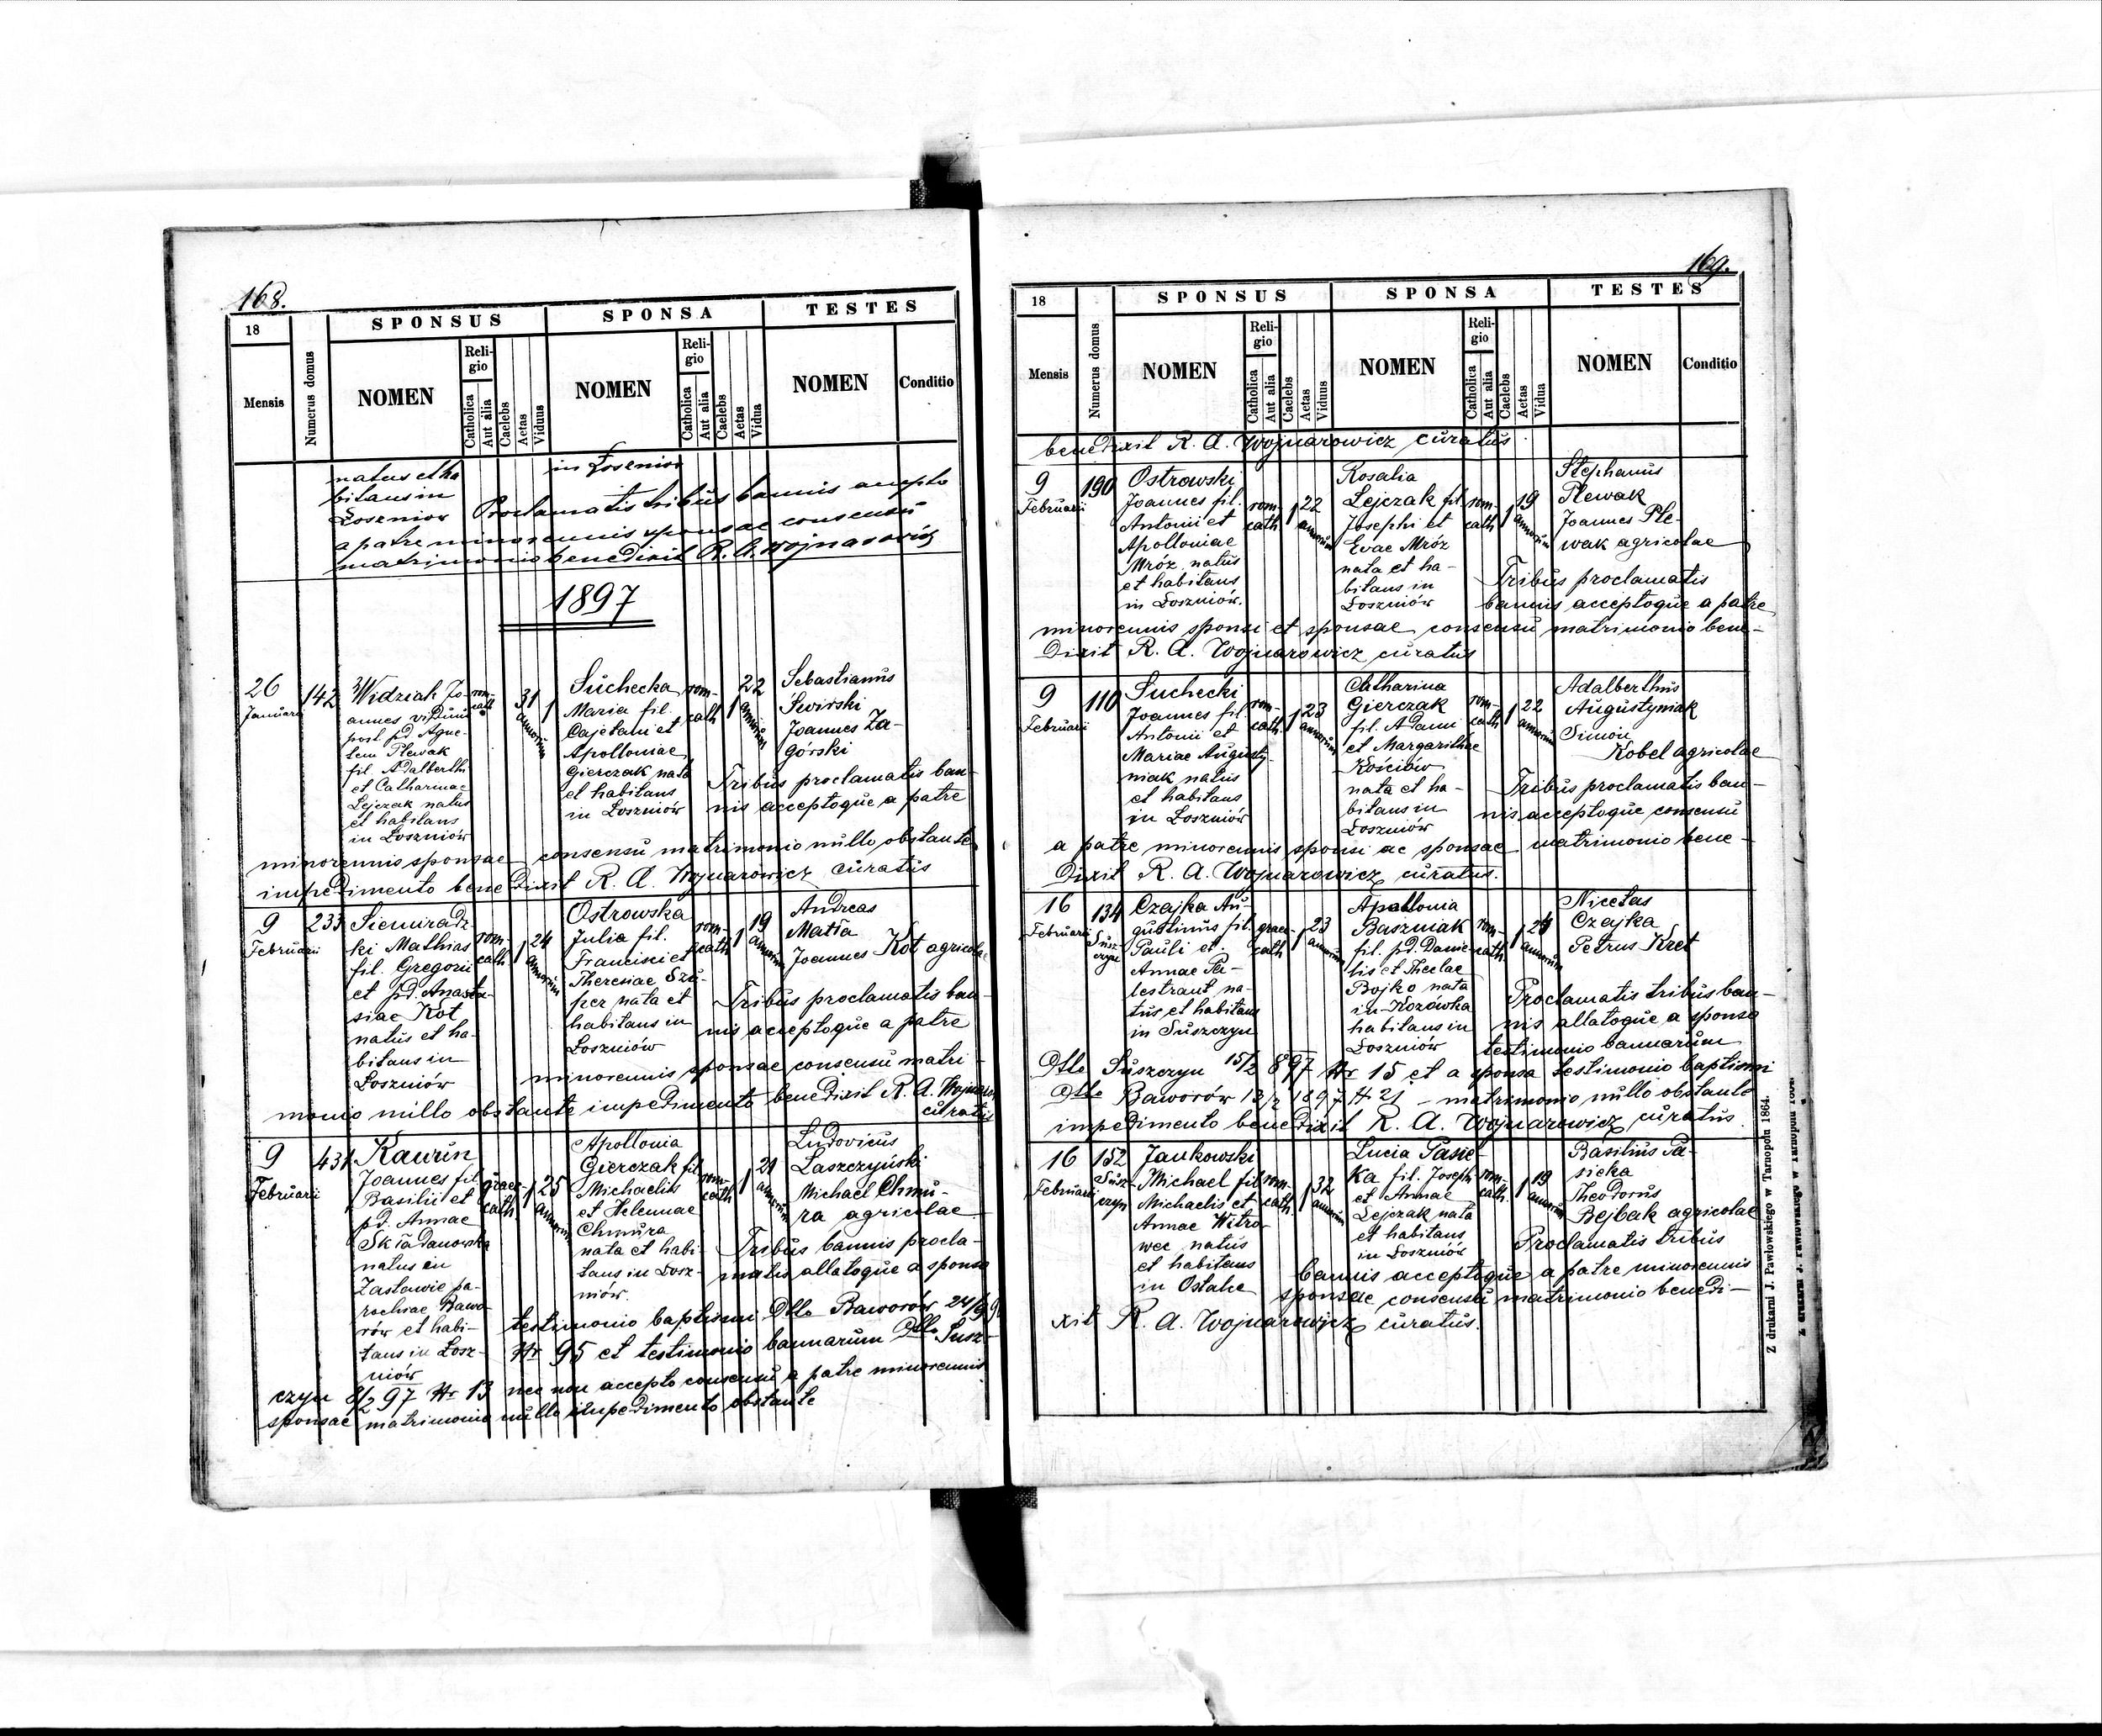 168.
18
SPONSUS
SPONSA
TESTES
Mensis
Numerus domus
NOMEN
Religio
Catholica
Aut alia
Caelebs
Aetas
Viduus
NOMEN
Religio
Catholica
Aut alia
Caelebs
Aetas
Vidua
NOMEN
Conditio
natus et ha
bitans in
Łoszniow
in Łoseniów
Proclamatis tribus bannis accepto
a patre minorennis sponsae consensu
matrimonio benedixit R. A. Wojnarowicz
1897
26
Januarii
142
Widziak Jo-
annes viduus
post pd. Agne-
tem Plewak
fil. Adalberthi
et Catharinae
Lejczak natus
et habitans
in Łoszniów
rom-
cath
31
annorum
1
Suchecka
Maria fil.
Cajetani et
Apolloniae
Gierczak nata
et habitans
in Łoszniów
rom-
cath
1
22
annorum
Sebastianus
Świrski
Joannes Za-
górski
Tribus proclamatis ban-
nis acceptoque a patre
minorennis sponsae consensu matrimonio nullo obstante
impedimento benedixit R. A. Wojnarowicz curatus
9
Februarii
233
Siemiradz
ki Mathias
fil. Gregorii
et pd. Anasta-
siae Kot
natus et ha-
bitans in
Łoszniów
rom-
cath.
1
24
annorum
Ostrowska
Julia fil.
Francisci et
Theresiae Szu-
per nata et
habitans in
Łoszniów
rom-
cath
1
19
annorum
Andreas
Matła
Joannes Kot agricolae
Tribus proclamatis ban-
nis acceptoque a patre
minorennis sponsae consensu matri-
monio nullo obstante impedimento benedixit R. A. Wojnarow
curatus
9
Februarii
431
Kawrin
Joannes fil.
Basilii et
pd. Annae
Składanowska
natus in
Zastawie pa-
rochiae Bawo-
rów et habi-
tans in Łosz-
niów
graec-
cath.
1
25
annorum
Apollonia
Gierczak fil.
Michaelis
et Helenae
Chmura
nata et habi-
tans in Łosz-
niów.
rom-
cath
1
21
annorum
Ludovicus
Laszczyński
Michael Chmu-
ra agricolae
Tribus bannis procla-
matis allatoque a sponso
testimonio baptismi Dtto Baworów 24/9 9
Nr 95 et testimonio bannarum Dtto Susz-
czyn 8/2 97 Nr 13 nec non accepto consensu a patre minorennis
sponsae matrimonio nullo impedimento obstante
169.
18
SPONSUS
SPONSA
TESTES
Mensis
Numerus domus
NOMEN
Religio
Catholica
Aut alia
Caelebs
Aetas
Viduus
NOMEN
Religio
Catholica
Aut alia
Caelebs
Aetas
Vidua
NOMEN
Conditio
benedixit R. A. Wojnarowicz curatus
9
Februarii
190
Ostrowski
Joannes fil.
Antonii et
Apolloniae
Mróz natus
et habitans
in Łoszniów.
rom-
cath.
1
22
annorum
Rosalia
Lejczak fil.
Josephi et
Evae Mróz
nata et ha-
bitans in
Łoszniów
rom-
cath
1
19
annorum
Stephanus
Plewak
Joannes Ple-
wak agricolae
Tribus proclamatis
bannis acceptoque a patre
minorennis sponsi et sponsae consensu matrimonio bene-
dixit R. A. Wojnarowicz curatus
9
Februarii
110
Suchecki
Joannes fil.
Antonii et
Mariae Augusty-
niak natus
et habitans
in Łoszniów
rom-
cath.
1
23
annorum
Catharina
Gierczak
fil. Adami
et Margarithae
Kościów
nata et ha-
bitans in
Łoszniów
rom-
cath
1
22
annorum
Adalberthus
Augustyniak
Simon
Kobel agricolae
Tribus proclamatis ban-
nis acceptoque consensu
a patre minorennis sponsi ac sponsae matrimonio bene-
dixit R. A. Wojnarowicz curatus.
16
Februarii
134
Susz-
czyn
Czajka Au-
gustinus fil.
Pauli et
Annae Pa-
lestrant na-
tus et habitans
in Suszczyn
graec-
cath
1
23
annorum
Apollonia
Baszniak
fil. pd. Danie-
lis et Theclae
Bojko nata
in Kozówka
habitans in
Łoszniów
rom-
cath
1
24
annorum
Nicetas
Czajka
Petrus Kret
Proclamatis tribus ban-
nis allatoque a sponso
testimonio bannarum
Dtto Suszczyn 15/2 897 Nr 15 et a sponsa testimonio baptismi
Dtto Baworów 13/2 1897 N 21 - matrimonio nullo obstante
impedimento benedixit R. A. Wojnarowicz curatus
16
Februarii
152
Susz-
czyn
Jankowski
Michael fil.
Michaelis et
Annae Witro-
wec natus
et habitans
in Ostalce
rom-
cath.
1
32
annorum
Lucia Pasie-
ka fil. Joseph
et Annae
Lejczak nata
et habitans
in Łoszniów
rom-
cath.
1
19
annorum
Basilius Pa-
sieka
Theodorus
Bejbak agricolae
Proclamatis tribus
bannis acceptoque a patre minorennis
sponsae consensu matrimonio benedi-
xit R. A. Wojnarowicz curatus.
Z drukarni J. Pawłowskiego w Tarnopolu 1864.